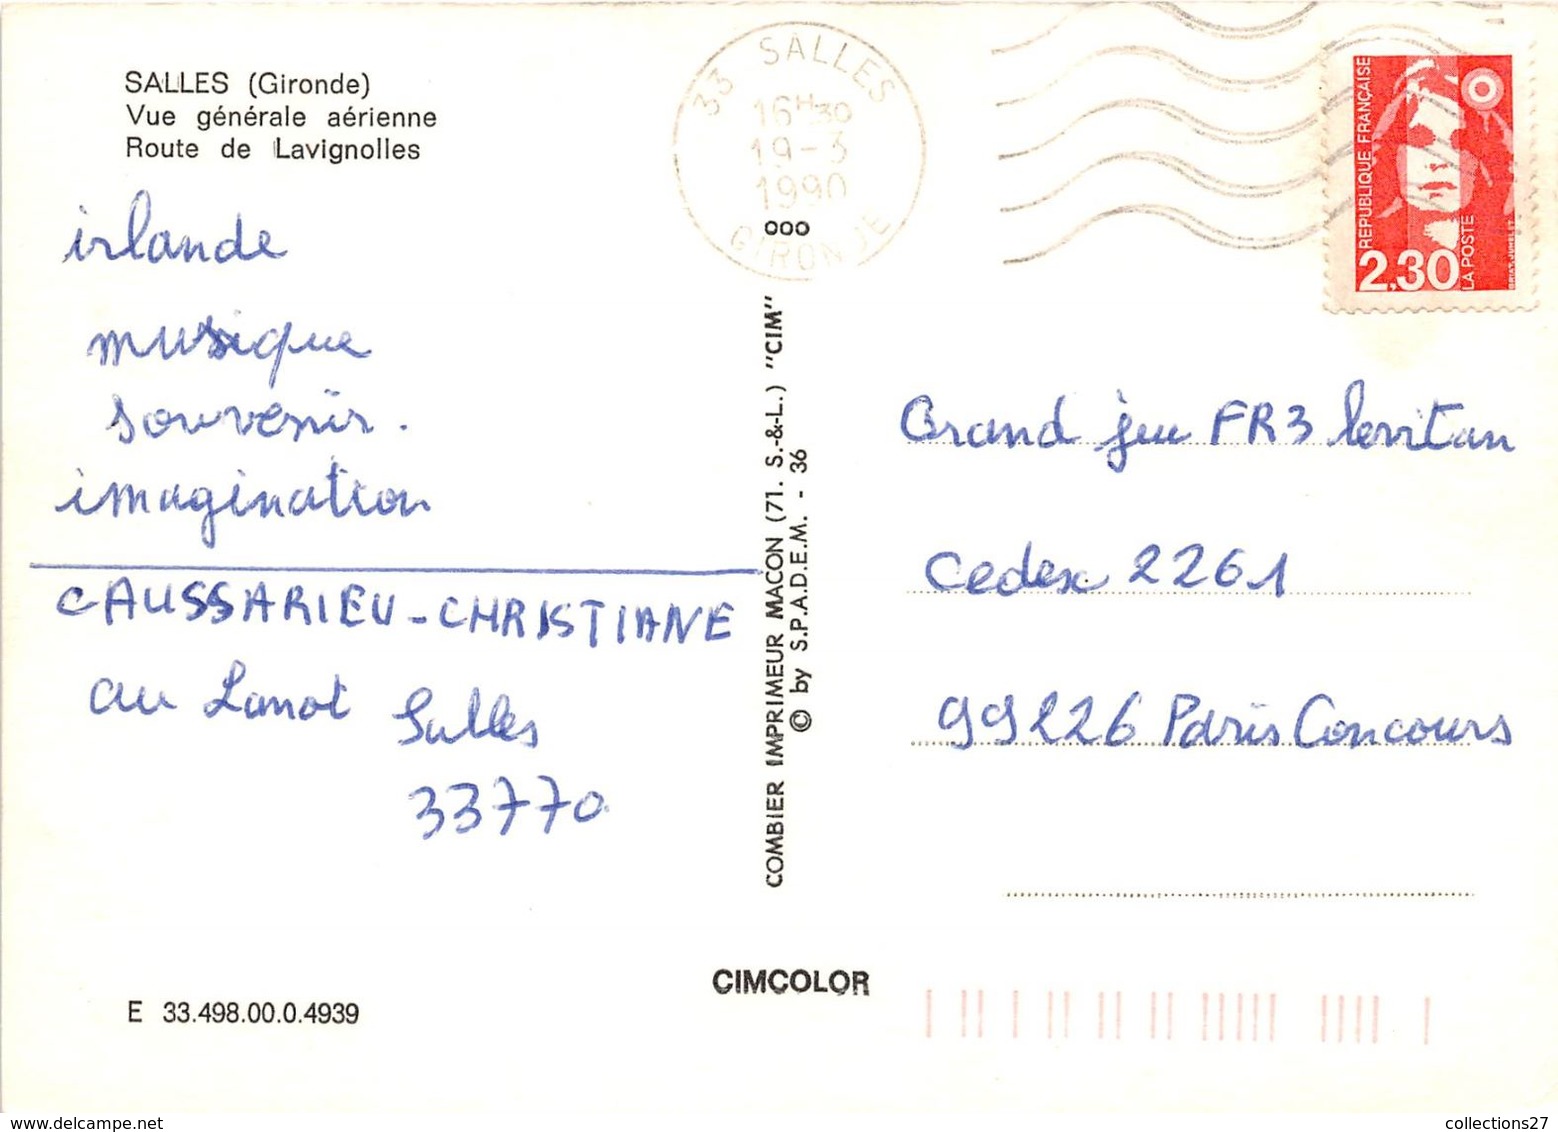 SALLES (Gironde)
Vue générale aérienne
Route de Lavignolles
irlande
musique
souvenir.
imagination
CAUSSARIEU-CHRISTIANE
au Lanot Salles
33770
E 33.498.00.0.4939
33 SALLES
16H30
19-3
1990
GIRONDE
000
COMBIER IMPRIMEUR MACON (71. S.-&-L.) "CIM"
© by S.P.A.D.E.M. - 36
CIMCOLOR
REPUBLIQUE FRANÇAISE
2,30
LA POSTE
Grand jeu FR3 levitan
Cedex 2261
99226 Paris Concours
collections27